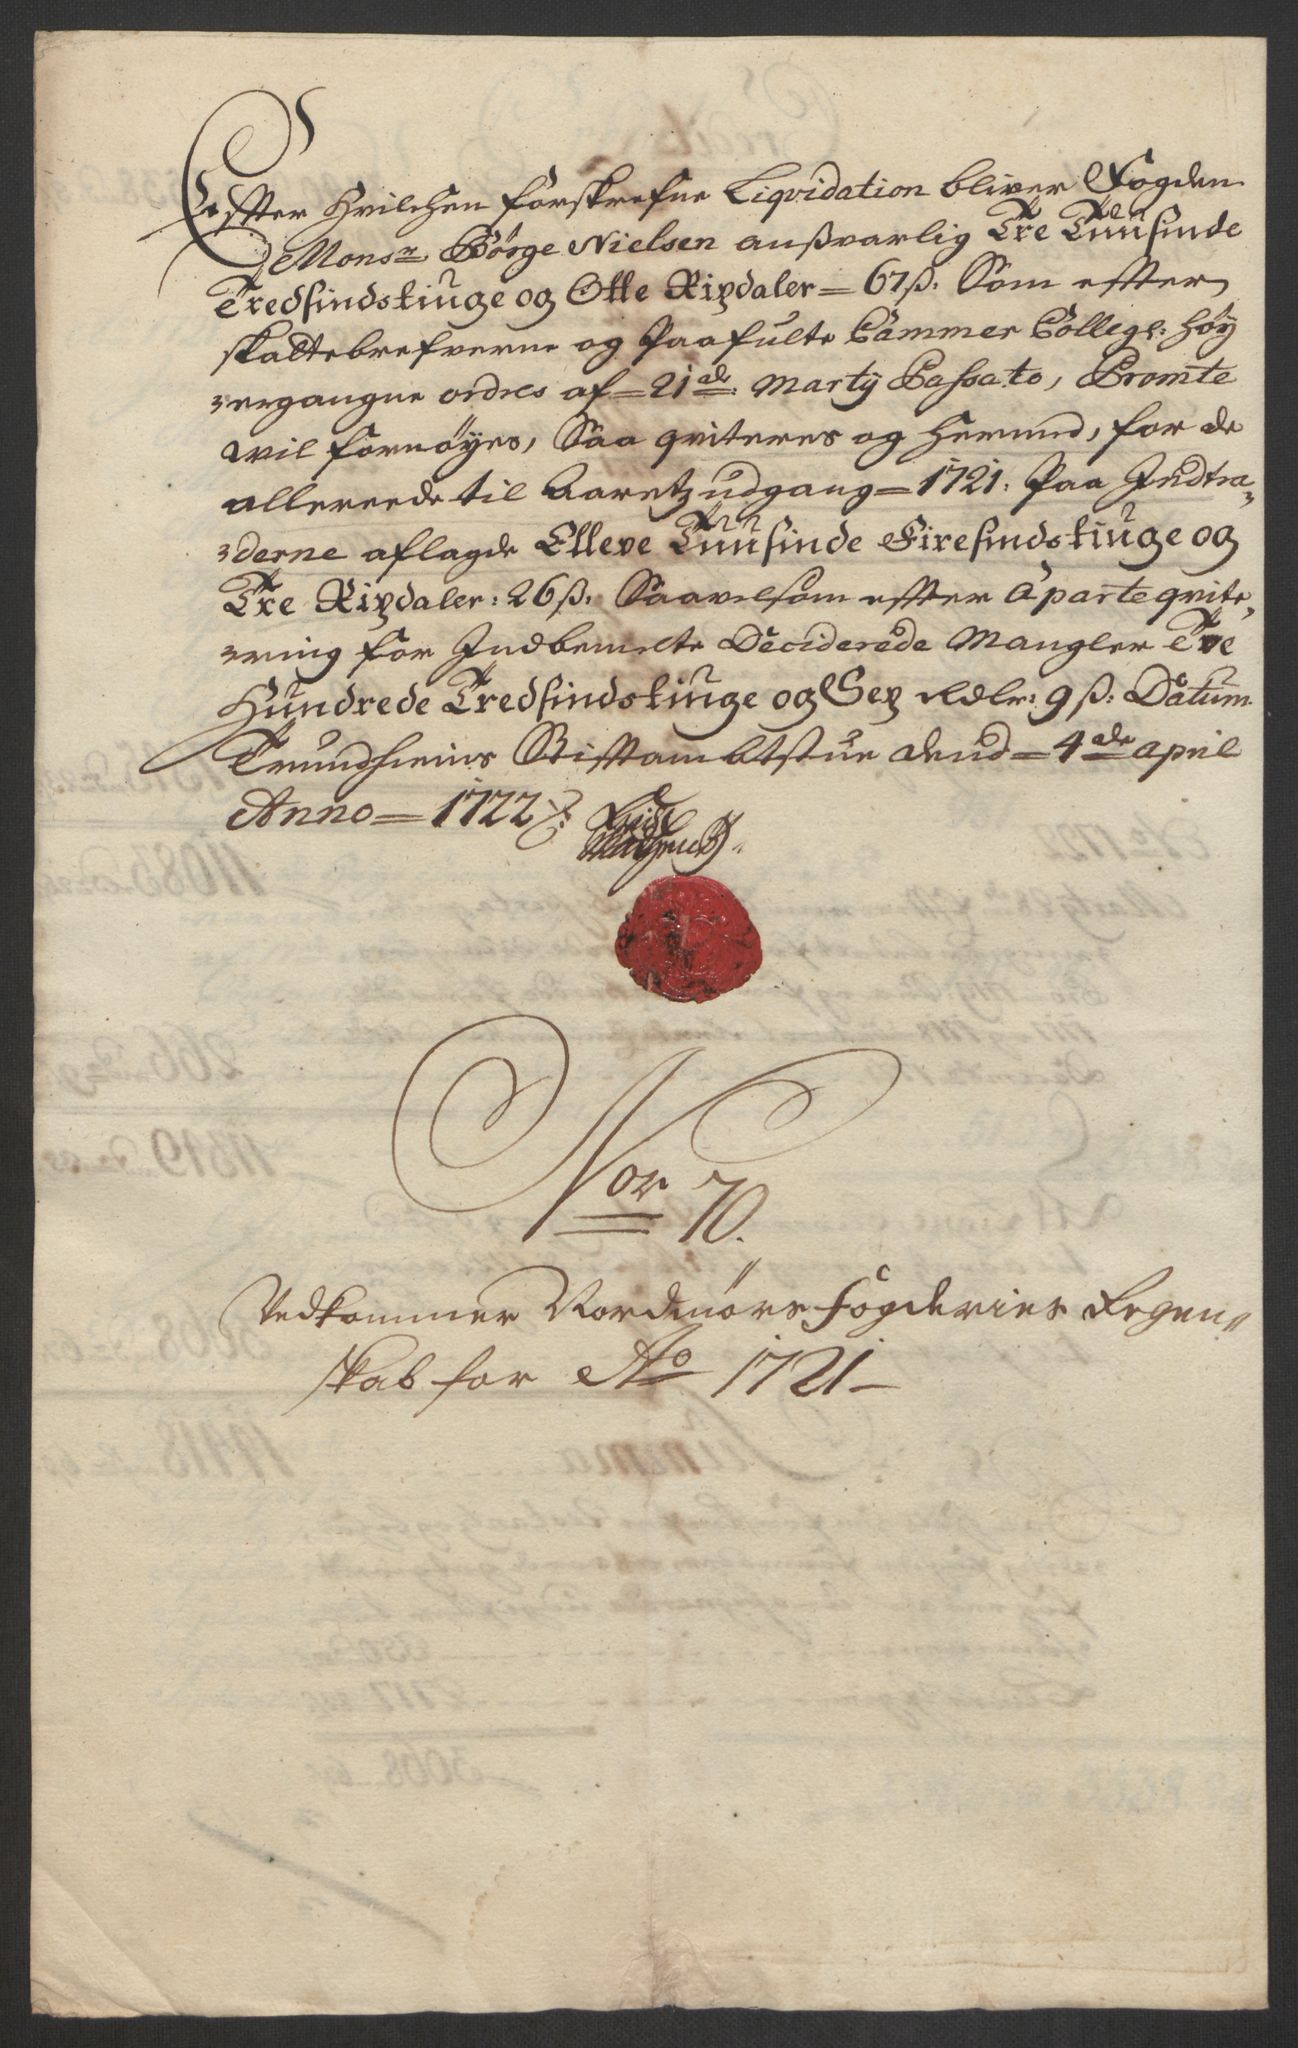 Effter Hvilchen forskrefne Liqvidation bliver Fogden
Monsr Børge Nielsen ansvarlig Tre Tuusinde
Tredsindstiuge og Otte Rixdaler = 67 ß. Som effter
skattebrefverne og Paafulte Cammer Colleg: høy
ergangne ordres af = 21de Martij Passato, Promte
vil fornøyes, Saa qviteres og herved, for de
allereede til Aaretz udgang = 1721. Paa Indtra-
derne aflagde Elleve Tuusinde Firesindstiuge og
Tre Rixdaler: 26 ß. Saavelsom effter Aparte qvite-
ring for Indbemelte Deciderede Mangler Tve
Hundrede Tredsindstiuge og Sex Rdlr: 9 ß: Datum
Trundhiems Stifftambtstue dend = 4de April
Anno = 1722
Nor 70.
Vedkommer Nordmørs Fogderies Regen„
skab for Ao 1721